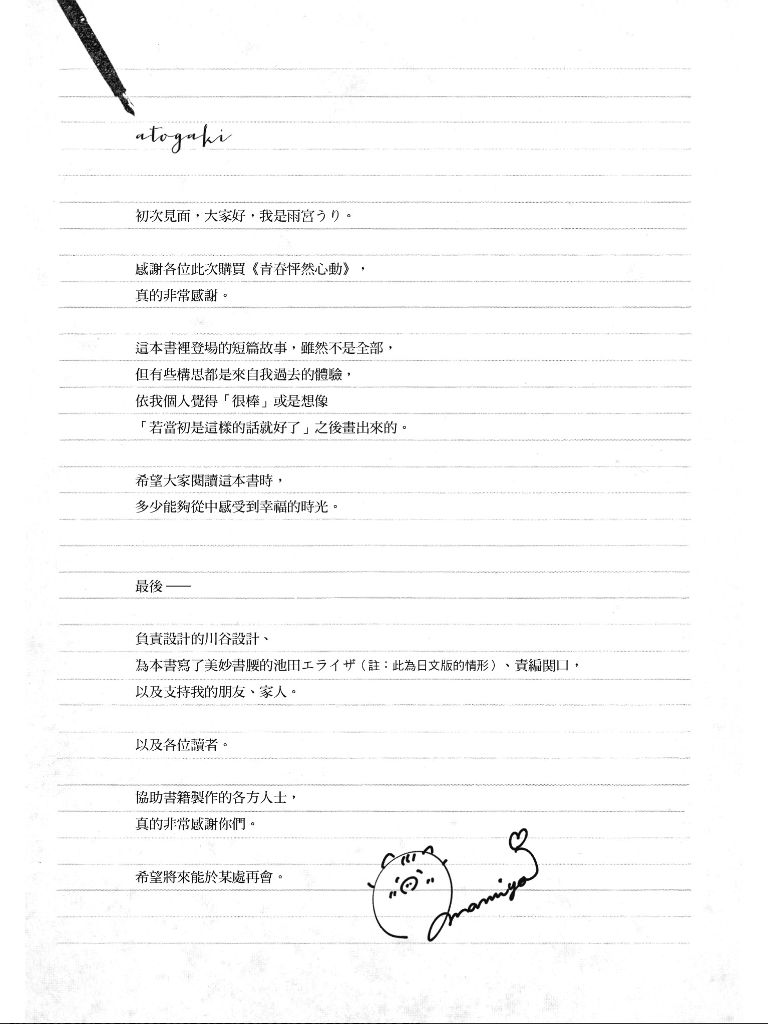 atogaki
初次見面，大家好，我是雨宮うり。
感謝各位此次購買《青春怦然心動》，
真的非常感謝。
這本書裡登場的短篇故事，雖然不是全部，
但有些構思都是來自我過去的體驗，
依我個人覺得「很棒」或是想像
「若當初是這樣的話就好了」之後畫出來的。
希望大家閱讀這本書時，
多少能夠從中感受到幸福的時光。
最後——
負責設計的川谷設計、
為本書寫了美妙書腰的池田エライザ（註：此為日文版的情形）、責編関口，
以及支持我的朋友、家人。
以及各位讀者。
協助書籍製作的各方人士，
真的非常感謝你們。
希望將來能於某處再會。
amamiya